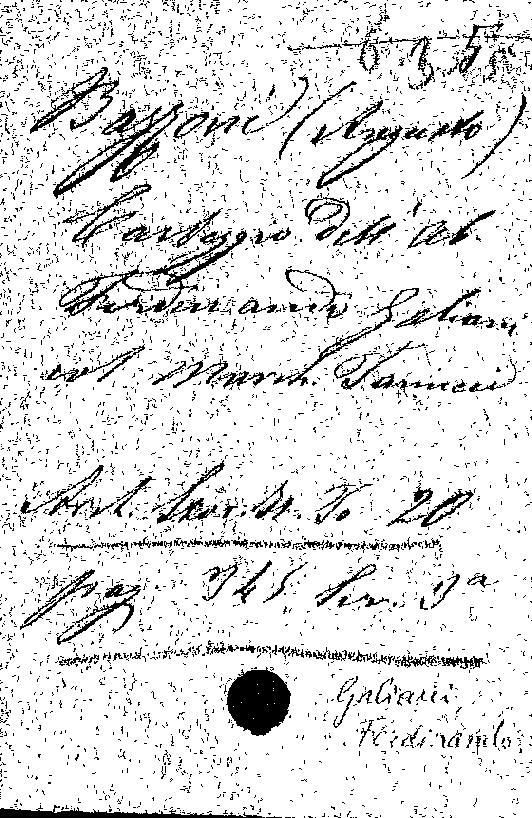 635
Bazzoni (Augusto)
Carteggio dell' Ab.
Ferdinando Galiani
col March. Tanucci
Arch. Stor. It. To 20
pag 345 Ser. 3a
Galiani
Ferdinando